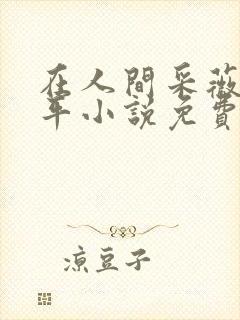 在人間采薇
年小說免費
涼豆子